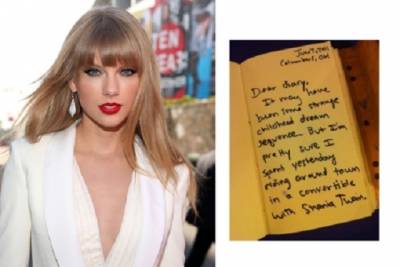 TEN
June 7, 2011
Columbus, OH
Dear diary,
It may have
been some strange
childhood dream
sequence. But I'm
pretty sure I
spent yesterday
riding around town
in a convertible
with Shania Twain